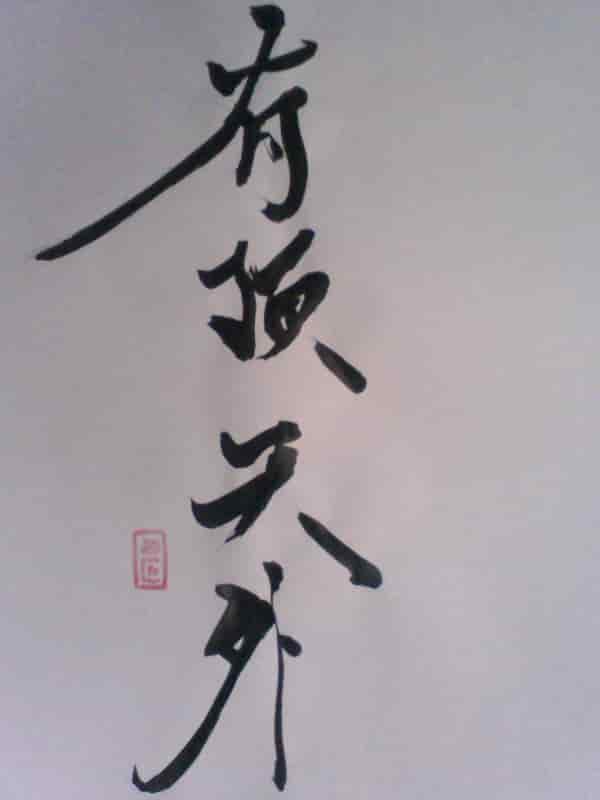 有頂天外